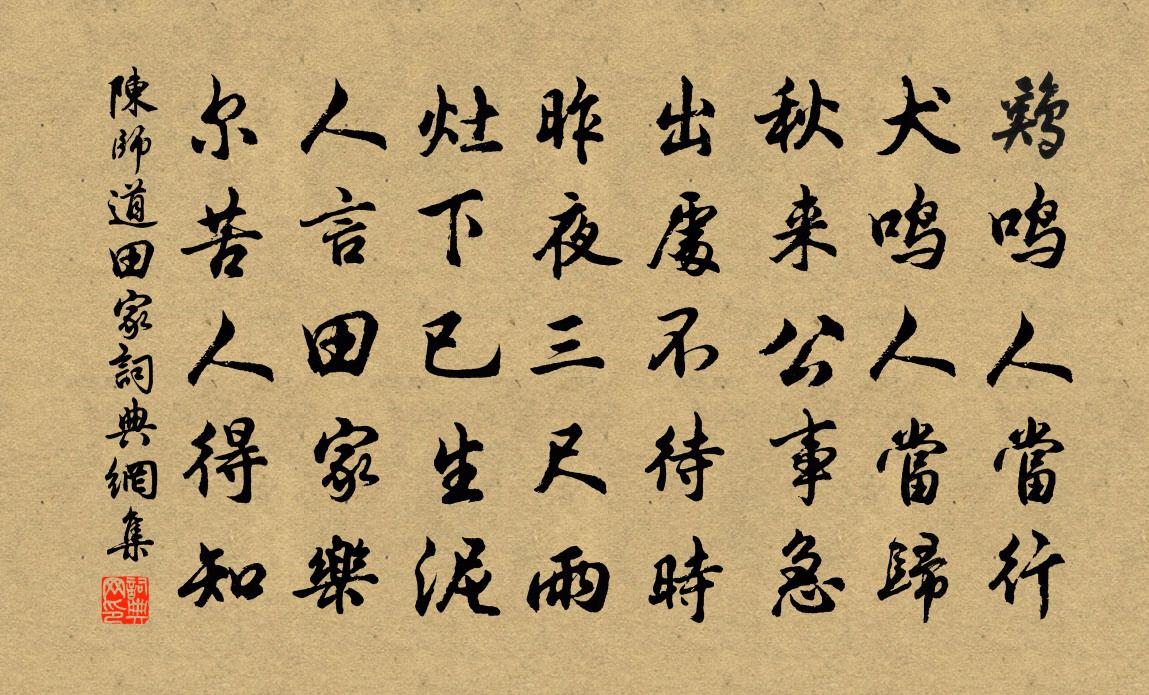 鷄鳴人當行
犬鳴人當歸
秋来公事急
出處不待時
昨夜三尺雨
灶下已生泥
人言田家樂
尔苦人得知
陳師道田家詞典網集
詞典网印